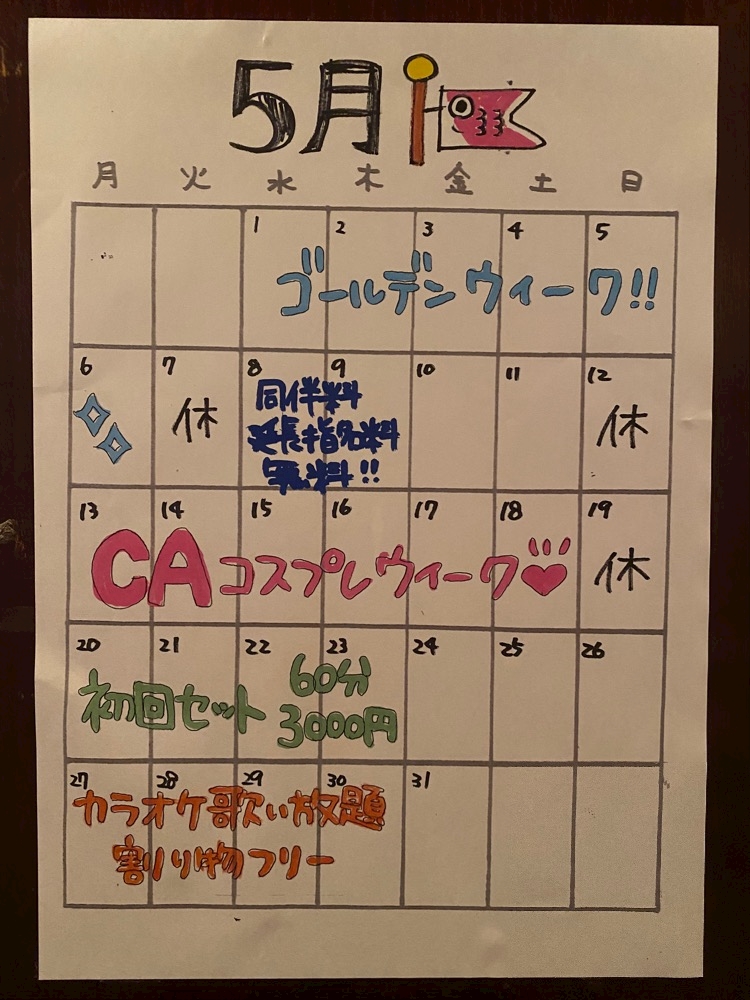 5月
月 火 水 木 金 土 日
1 2 3 4 5
ゴールデンウィーク!!
6 7 8 9 10 11 12
休
同伴料
延長指名料
無料!!
休
13 14 15 16 17 18 19
CAコスプレウィーク
休
20 21 22 23 24 25 26
初回セット 60分
3000円
27 28 29 30 31
カラオケ歌い放題
割り物フリー